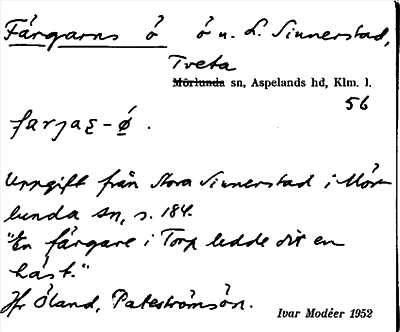 Färgarns ö ö n. L. Sinnerstad,
Tveta
Mörlunda sn, Aspelands hd, Klm. l.
56
farjaʂ-ǿ.
Uppgift från Stora Sinnerstad i Mör-
lunda sn, s. 184.
"En färgare i Torp ledde dit en
häst."
Jfr Öland, Pateströmsön.
Ivar Modéer 1952